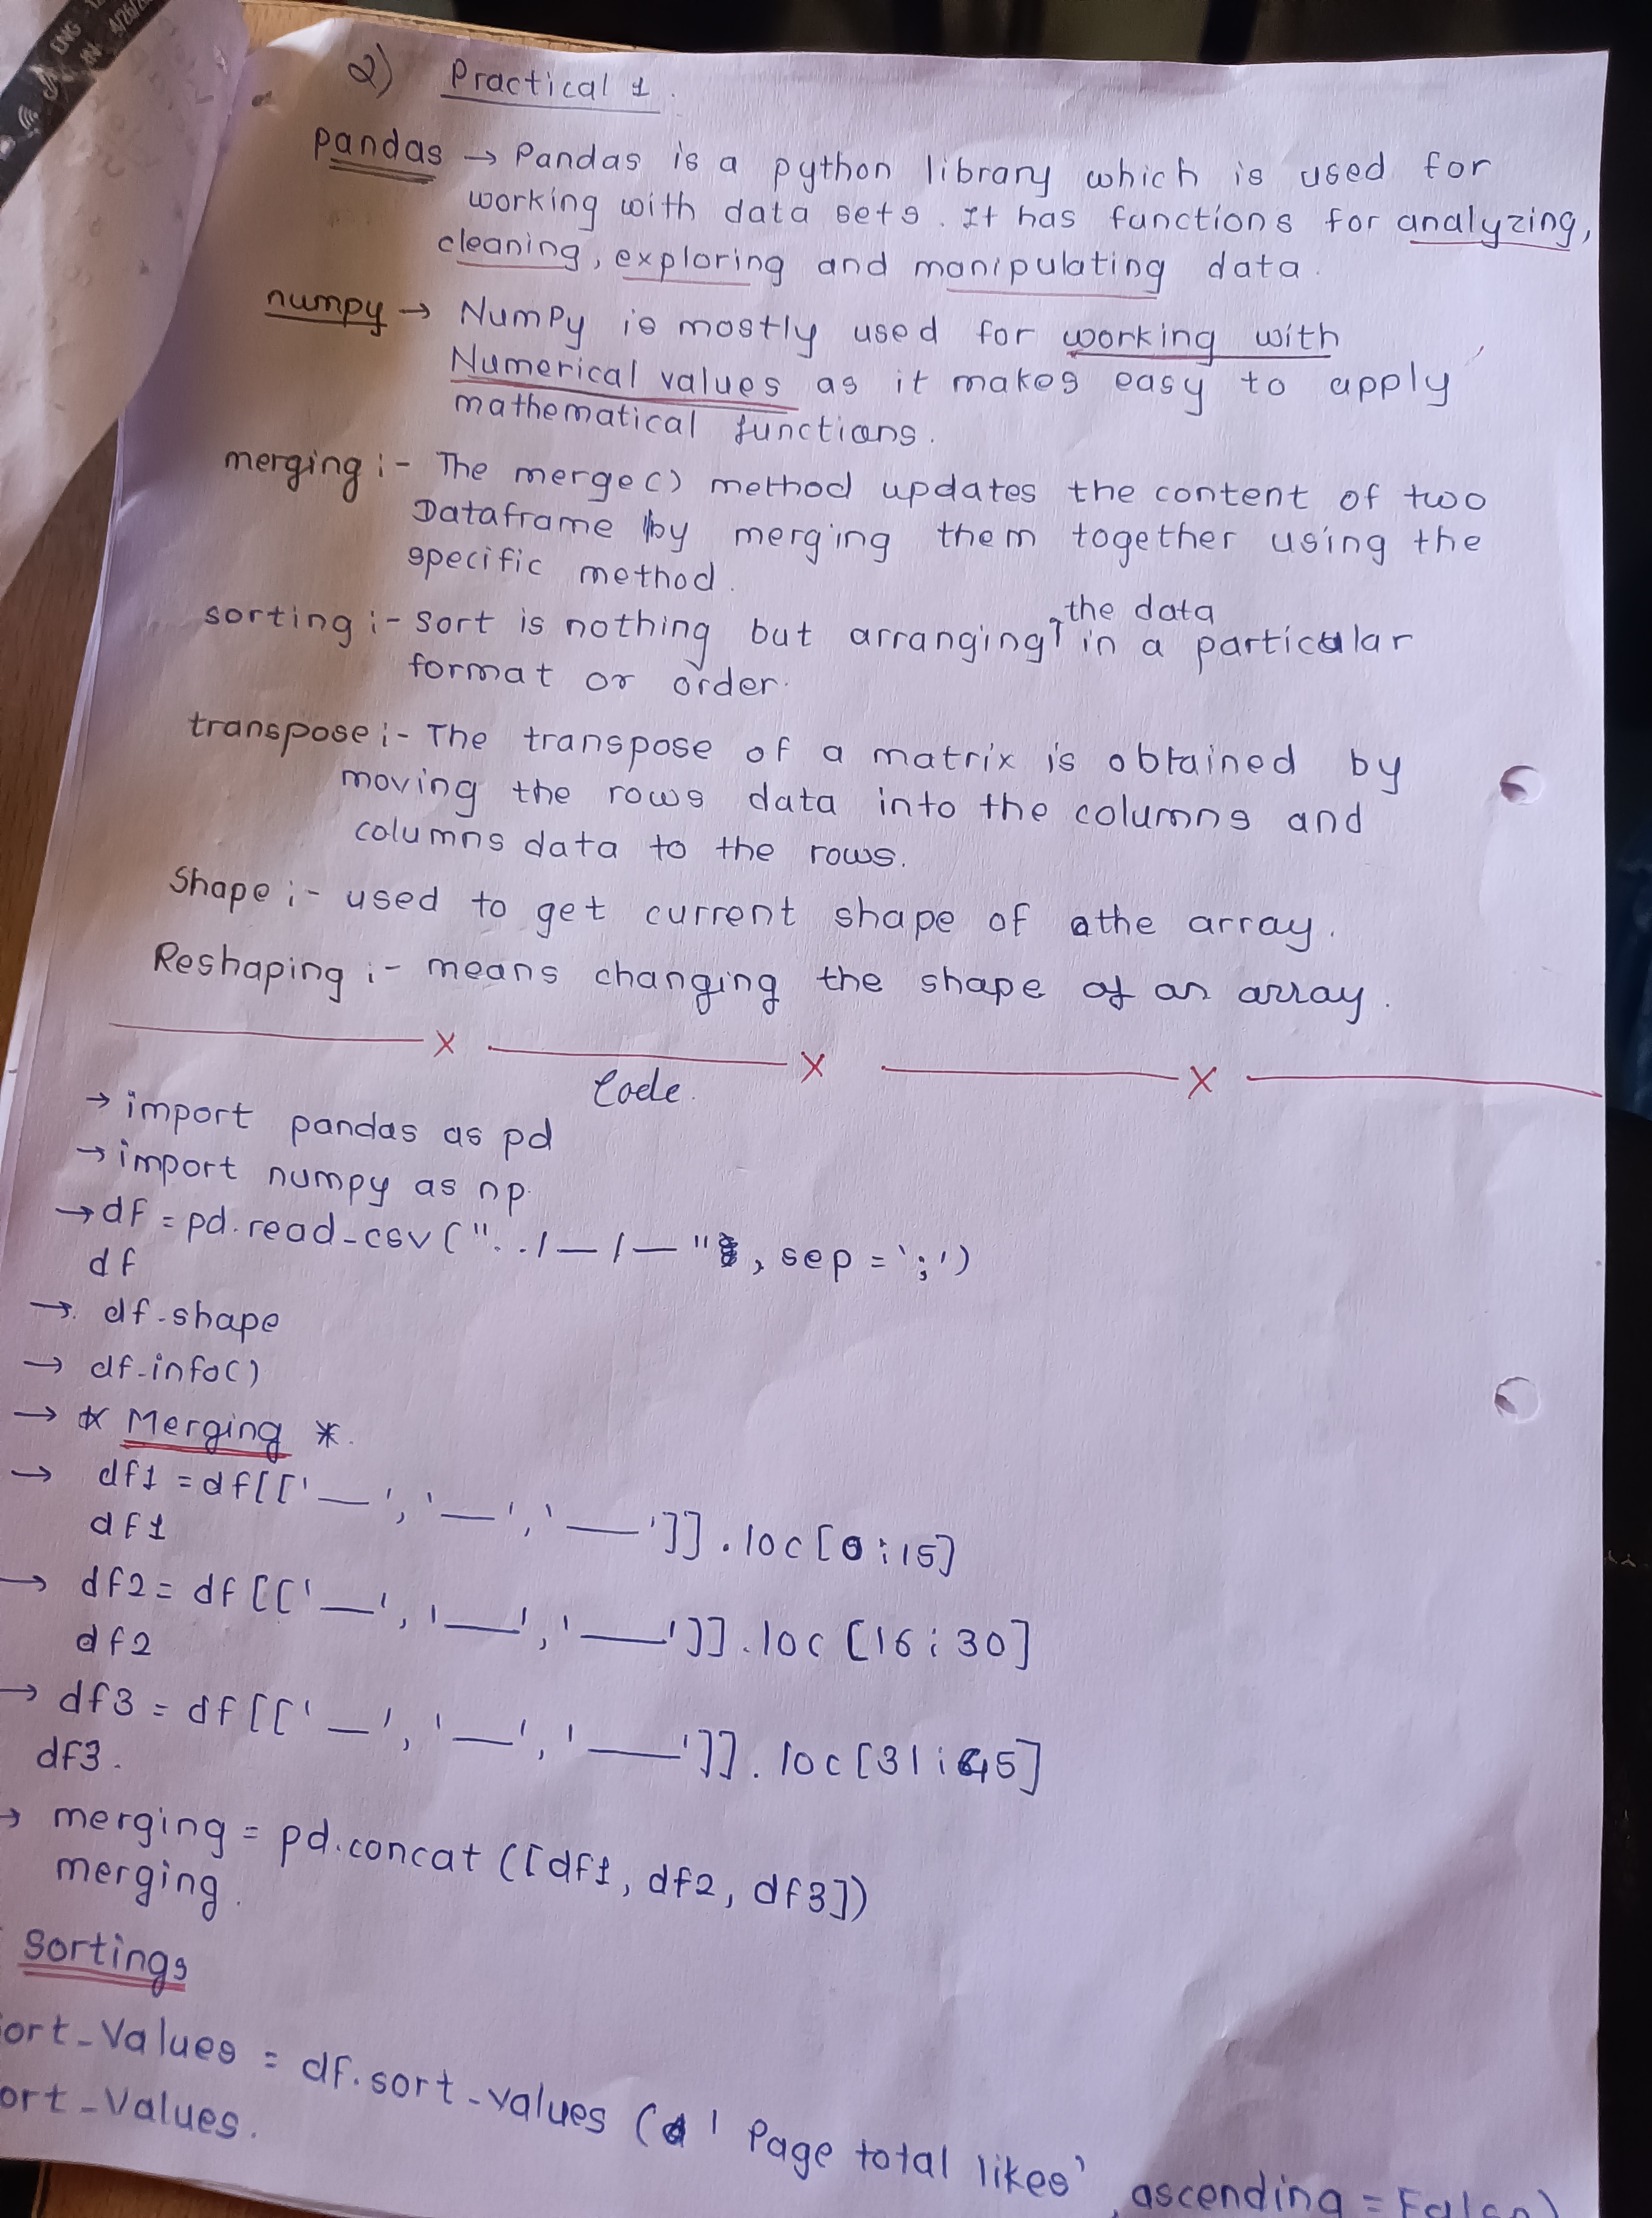 ENG
IN
4/26/2
2) Practical 1.
pandas → Pandas is a python library which is used for
working with data sets. It has functions for analyzing,
cleaning, exploring and manipulating data.
numpy → NumPy is mostly used for working with
Numerical values as it makes easy to apply
mathematical functions.
merging :- The merge() method updates the content of two
Dataframe by merging them together using the
specific method.
sorting :- Sort is nothing but arranging the data in a particular
format or order.
transpose :- The transpose of a matrix is obtained by
moving the rows data into the columns and
columns data to the rows.
Shape :- used to get current shape of the array.
Reshaping :- means changing the shape of an array.
Code.
→ import pandas as pd
→ import numpy as np.
→ df = pd.read_csv("../—/—", sep=';')
df
→ df.shape
→ df.info()
→ * Merging *.
→ df1 = df[['—', '—', '—']].loc[0:15]
df1
→ df2 = df[['—', '—', '—']].loc[16:30]
df2
→ df3 = df[['—', '—', '—']].loc[31:45]
df3.
→ merging = pd.concat([df1, df2, df3])
merging.
Sortings
ort_Values = df.sort_values('Page total likes', ascending = False)
ort_Values.